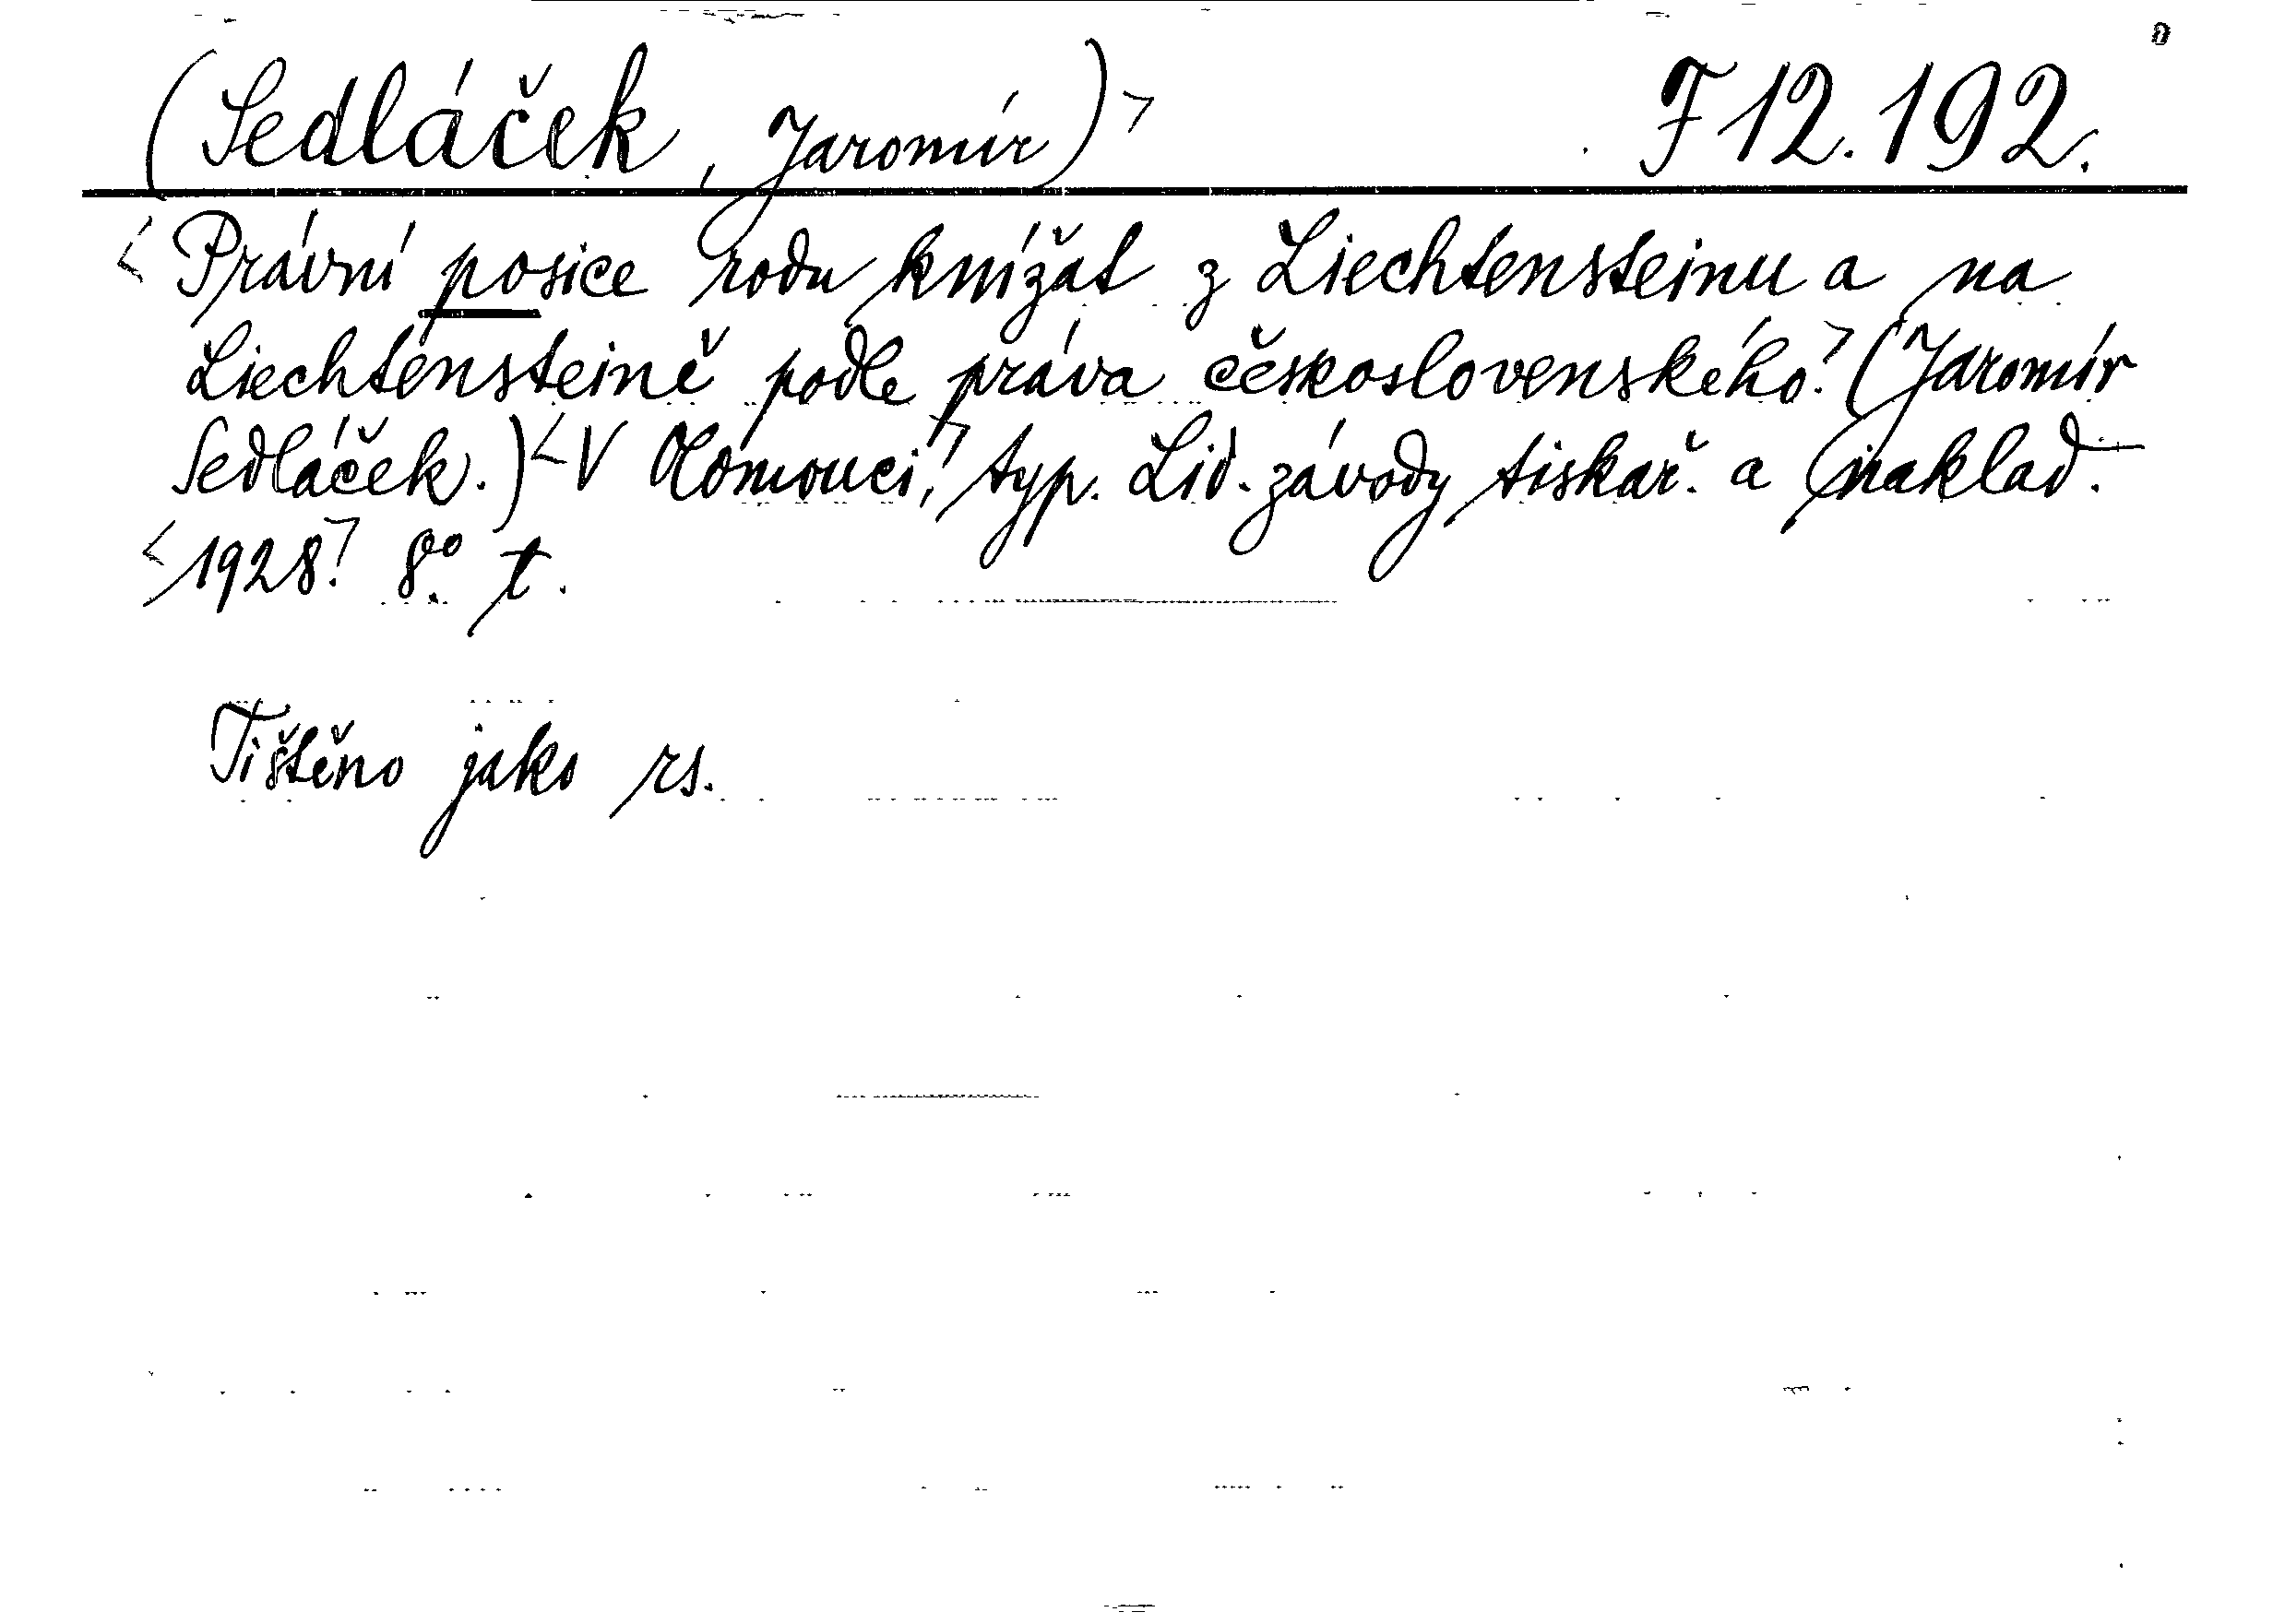 (Sedláček, Jaromír)> F 12.192.
<Právní posice rodu knížat z Liechtensteinu a na
Liechtensteině podle práva československého.> (Jaromír
Sedláček.) <V Olomouci,> typ. Lid. závody tiskař. a naklad.
<1928.> 8°. t.
Tištěno jako rs.